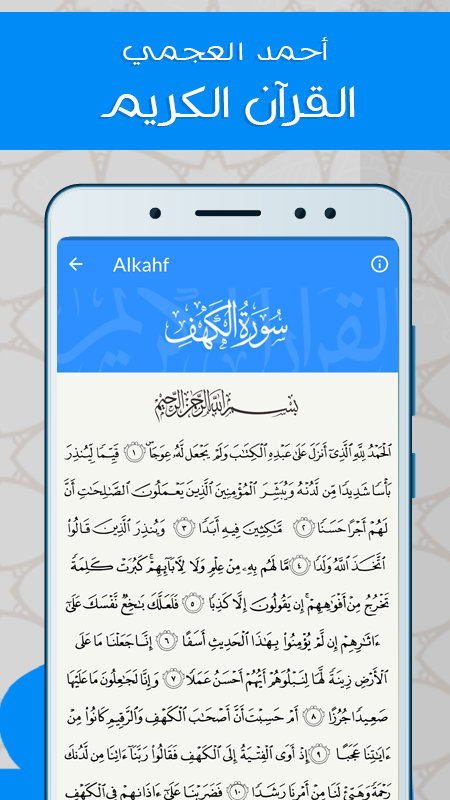 أحمد العجمي
القرآن الكريم
Alkahf
القرآن الكريم
سُورَةُ الكَهْفِ
بِسْمِ اللَّهِ الرَّحْمَٰنِ الرَّحِيمِ
ٱلْحَمْدُ لِلَّهِ ٱلَّذِىٓ أَنزَلَ عَلَىٰ عَبْدِهِ ٱلْكِتَٰبَ وَلَمْ يَجْعَل لَّهُۥ عِوَجَاۜ ١ قَيِّمًا لِّيُنذِرَ
بَأْسًا شَدِيدًا مِّن لَّدُنْهُ وَيُبَشِّرَ ٱلْمُؤْمِنِينَ ٱلَّذِينَ يَعْمَلُونَ ٱلصَّٰلِحَٰتِ أَنَّ
لَهُمْ أَجْرًا حَسَنًا ٢ مَّٰكِثِينَ فِيهِ أَبَدًا ٣ وَيُنذِرَ ٱلَّذِينَ قَالُوا۟
ٱتَّخَذَ ٱللَّهُ وَلَدًا ٤ مَّا لَهُم بِهِۦ مِنْ عِلْمٍ وَلَا لِـَٔابَآئِهِمْ ۚ كَبُرَتْ كَلِمَةً
تَخْرُجُ مِنْ أَفْوَٰهِهِمْ ۚ إِن يَقُولُونَ إِلَّا كَذِبًا ٥ فَلَعَلَّكَ بَٰخِعٌ نَّفْسَكَ عَلَىٰٓ
ءَاثَٰرِهِمْ إِن لَّمْ يُؤْمِنُوا۟ بِهَٰذَا ٱلْحَدِيثِ أَسَفًا ٦ إِنَّا جَعَلْنَا مَا عَلَى
ٱلْأَرْضِ زِينَةً لَّهَا لِنَبْلُوَهُمْ أَيُّهُمْ أَحْسَنُ عَمَلًا ٧ وَإِنَّا لَجَٰعِلُونَ مَا عَلَيْهَا
صَعِيدًا جُرُزًا ٨ أَمْ حَسِبْتَ أَنَّ أَصْحَٰبَ ٱلْكَهْفِ وَٱلرَّقِيمِ كَانُوا۟ مِنْ
ءَايَٰتِنَا عَجَبًا ٩ إِذْ أَوَى ٱلْفِتْيَةُ إِلَى ٱلْكَهْفِ فَقَالُوا۟ رَبَّنَآ ءَاتِنَا مِن لَّدُنكَ
رَحْمَةً وَهَيِّئْ لَنَا مِنْ أَمْرِنَا رَشَدًا ١٠ فَضَرَبْنَا عَلَىٰٓ ءَاذَانِهِمْ فِى ٱلْكَهْفِ